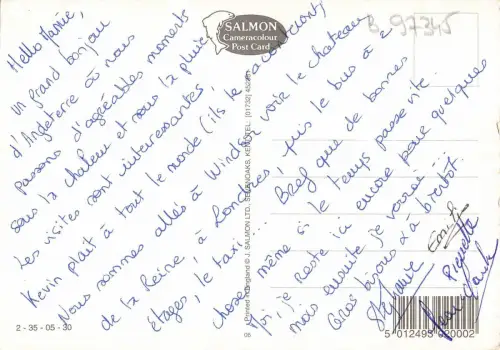 Hello Jamie,
Un grand bonjour
d'Angleterre où nous
passons d'agréables moments
sous la chaleur et sous la pluie.
Les visites sont intéressantes.
Kevin plaît à tout le monde (ils le racontent)
Nous sommes allés à Windsor voir le chateau
de la Reine, à Londres puis le bus à 2
étages, le taxi... Bref que de bonnes
choses même si le temps passe vite.
je reste ici encore pour quelques
mois ensuite je verrai...
Gros bijous à bientôt.
Stéphanie
Emily
Piquette
SALMON
Cameracolour
Post Card
B 97345
Printed in England © J. SALMON LTD., SEVENOAKS, KENT. TEL: (01732) 452381
06
2-35-05-30
5 012493 920002